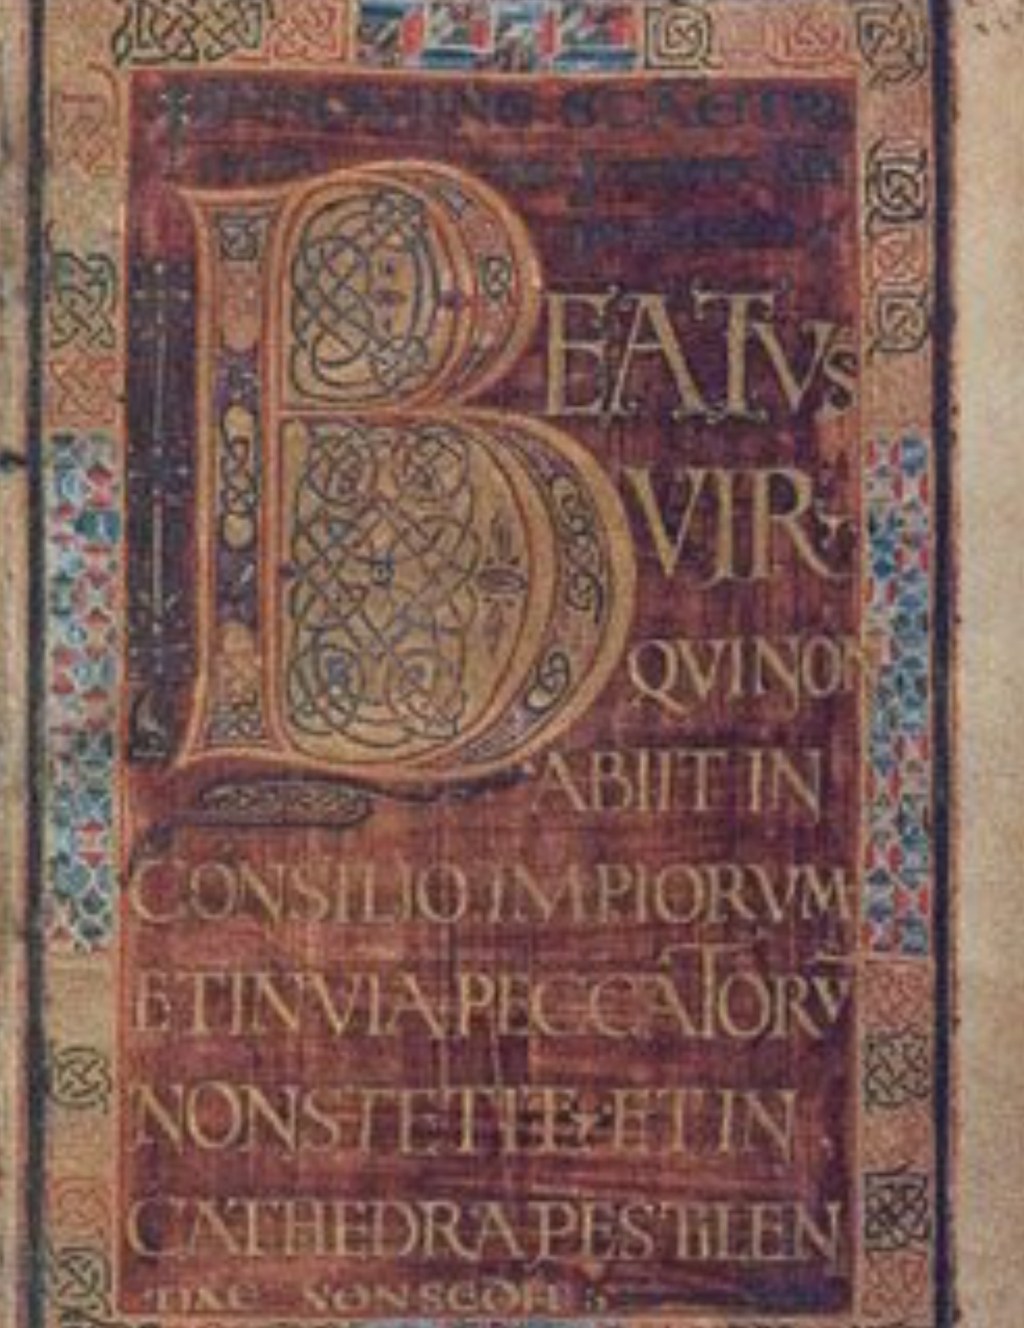 BEATVS
VIR·
QVI NON
ABIIT IN
CONSILIO IMPIORVM·
ET IN VIA PECCATORV̄
NON STETIT· ET IN
CATHEDRA PESTILEN
TIAE NON SEDIT·